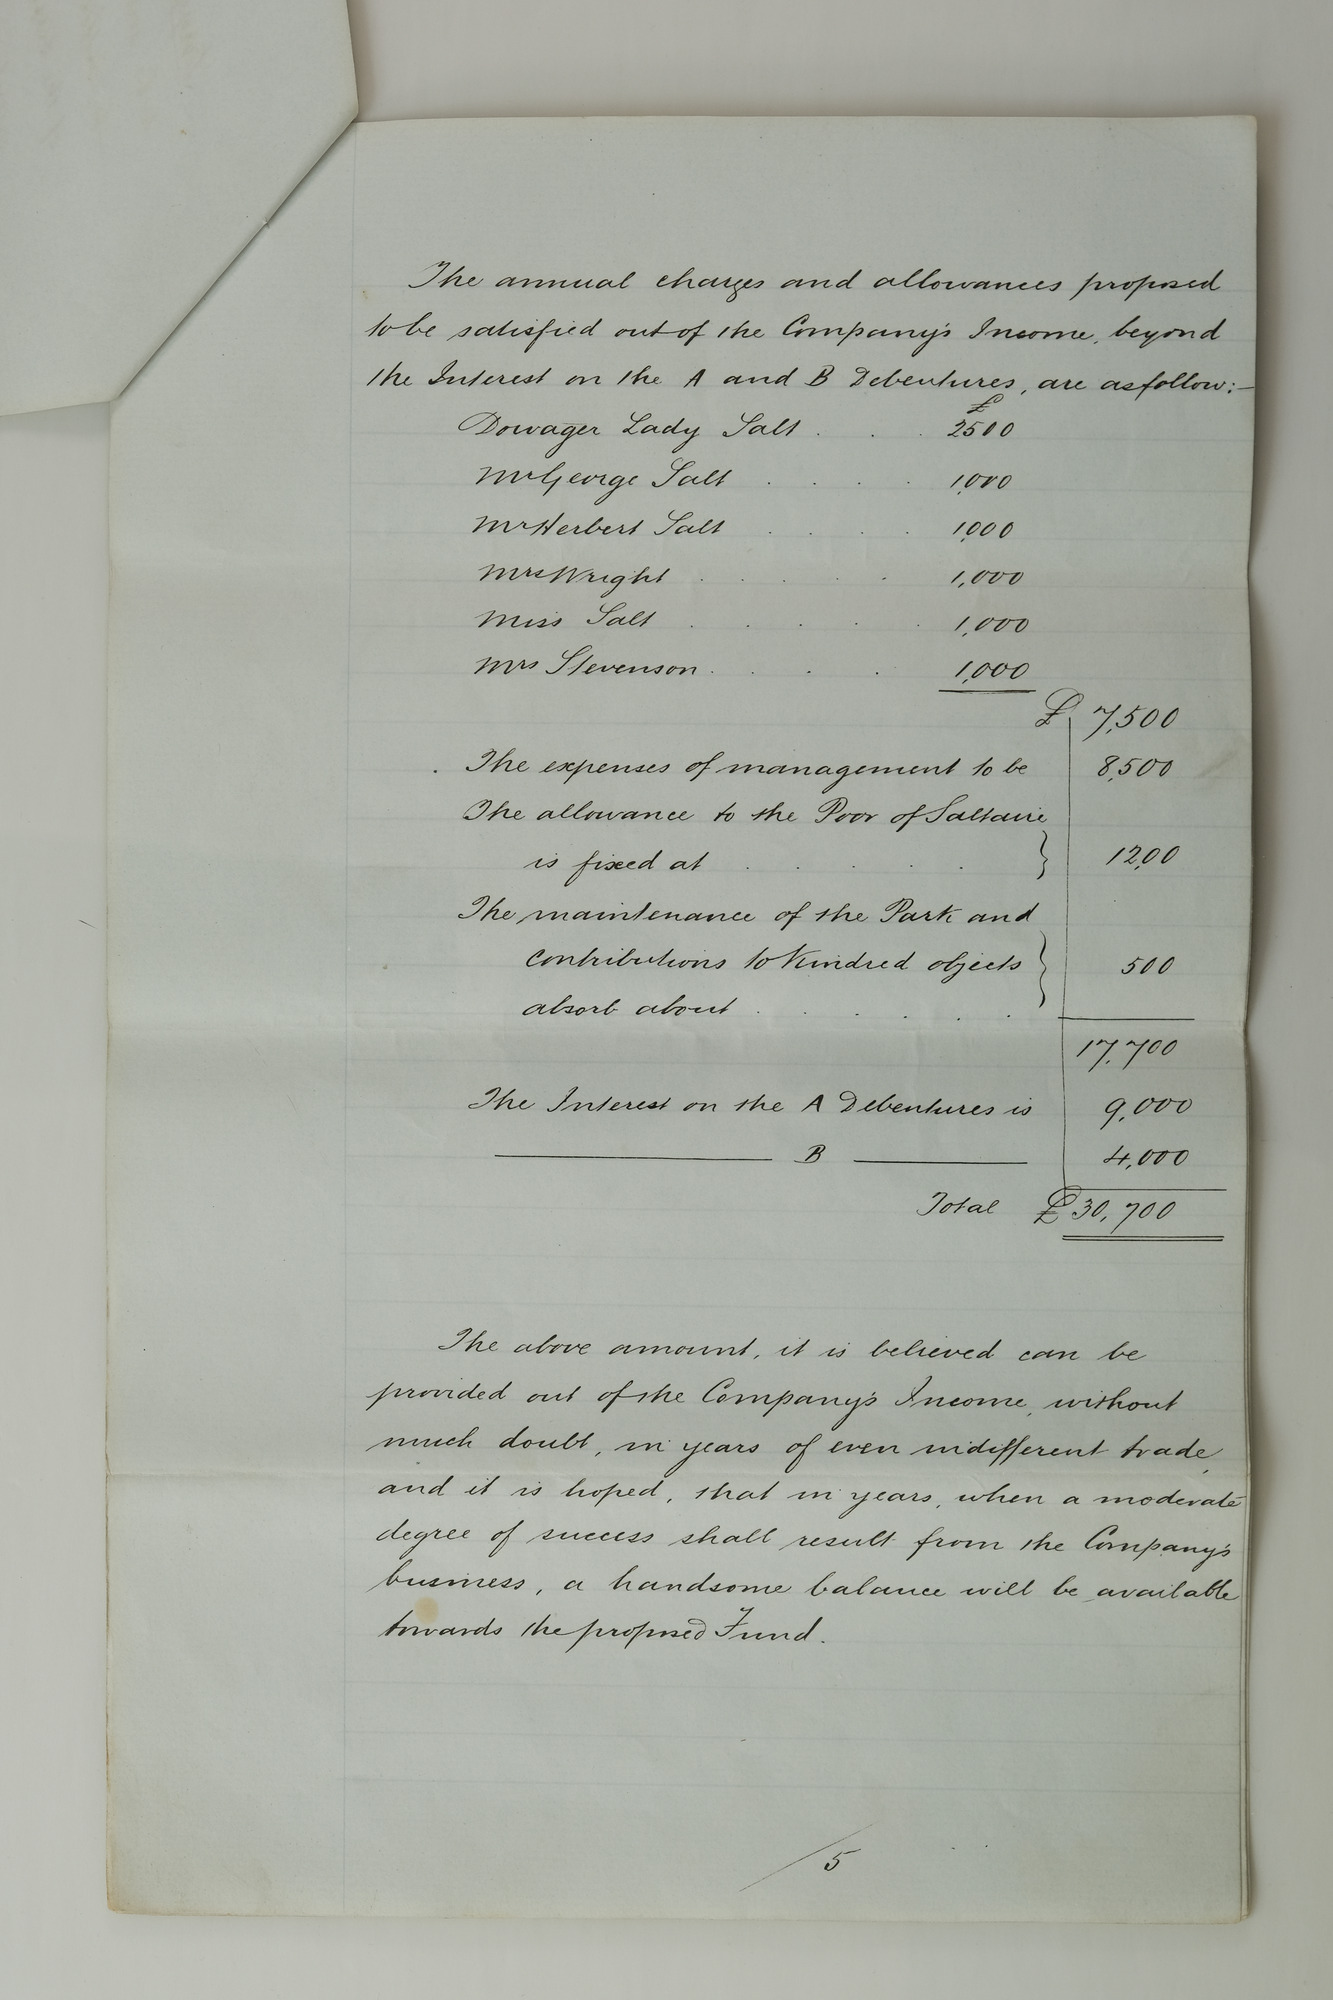 The annual charges and allowances proposed
to be satisfied out of the Company's Income, beyond
the Interest on the A and B Debentures, are as follow:—
£
Dowager Lady Salt . . . 2500
Mr George Salt . . . . 1,000
Mr Herbert Salt . . . 1,000
Mrs Wright . . . . 1,000
Miss Salt . . . . 1,000
Mrs Stevenson . . . . 1,000
£ 7,500
The expenses of management to be 8,500
The allowance to the Poor of Saltaire
is fixed at . . . } 1200
The maintenance of the Park and
contributions to Kindred objects } 500
absorb about . . . . .
17,700
The Interest on the A Debentures is 9,000
——— B ——— 4,000
Total £30,700
The above amount, it is believed can be
provided out of the Company's Income, without
much doubt, in years of even indifferent trade,
and it is hoped, that in years, when a moderate
degree of success shall result from the Company's
business, a handsome balance will be available
towards the proposed Fund.
/5